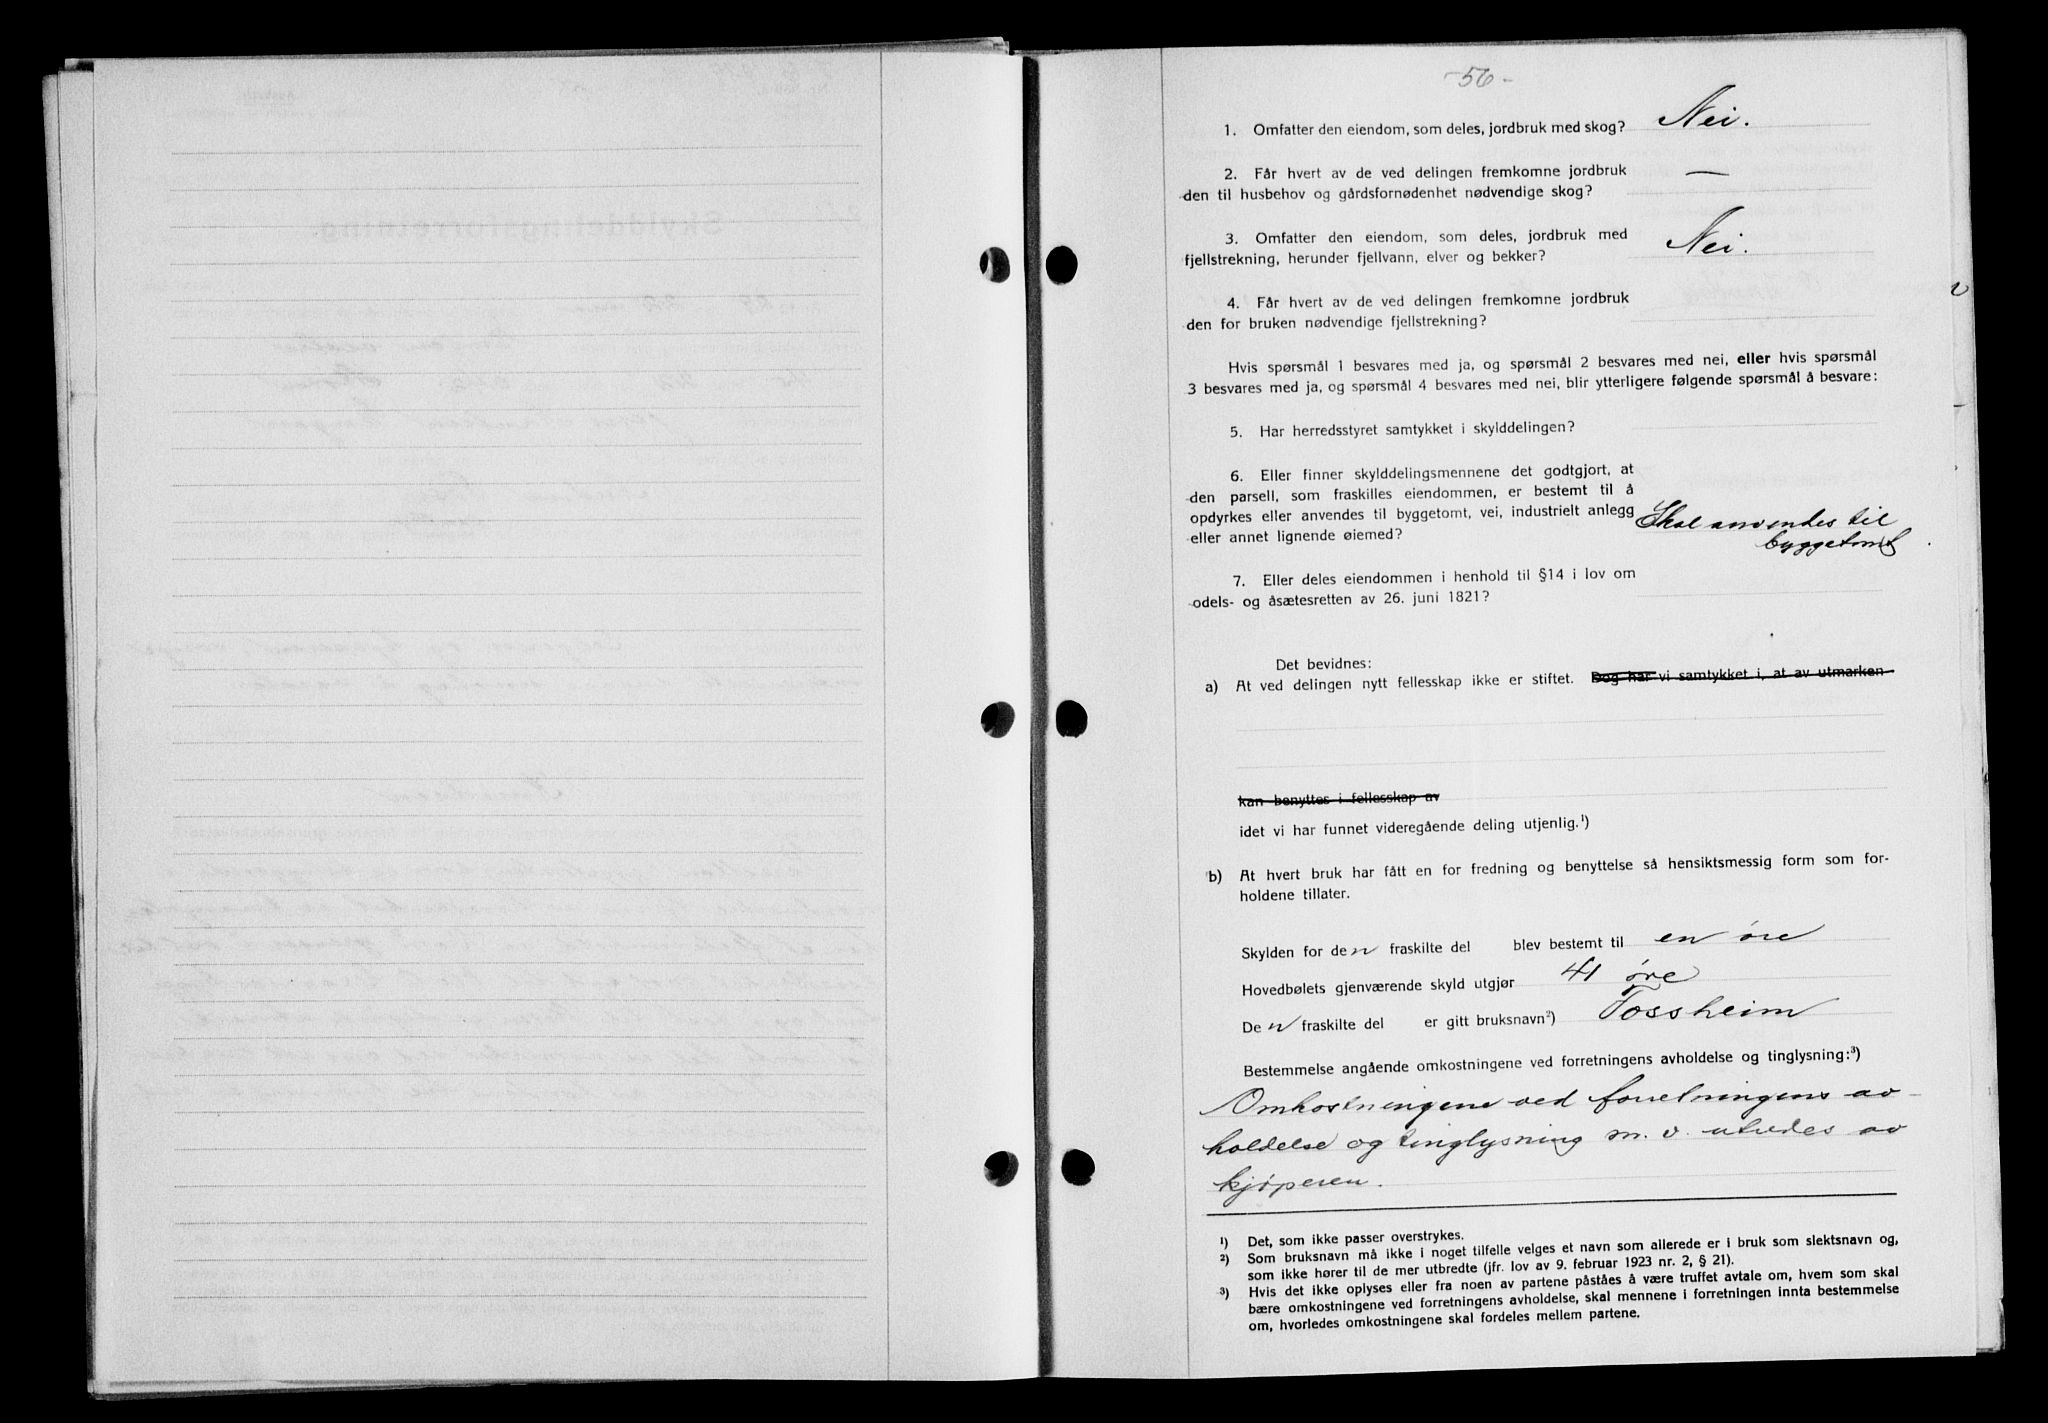 -56-
1. Omfatter den eiendom, som deles, jordbruk med skog? Nei.
2. Får hvert av de ved delingen fremkomne jordbruk —
den til husbehov og gårdsfornødenhet nødvendige skog?
3. Omfatter den eiendom, som deles, jordbruk med Nei.
fjellstrekning, herunder fjellvann, elver og bekker?
4. Får hvert av de ved delingen fremkomne jordbruk
den for bruken nødvendige fjellstrekning?
Hvis spørsmål 1 besvares med ja, og spørsmål 2 besvares med nei, eller hvis spørsmål
3 besvares med ja, og spørsmål 4 besvares med nei, blir ytterligere følgende spørsmål å besvare:
5. Har herredsstyret samtykket i skylddelingen?
6. Eller finner skylddelingsmennene det godtgjort, at
den parsell, som fraskilles eiendommen, er bestemt til å
opdyrkes eller anvendes til byggetomt, vei, industrielt anlegg Skal anvendes til
eller annet lignende øiemed? byggetomt
7. Eller deles eiendommen i henhold til §14 i lov om
odels- og åsætesretten av 26. juni 1821?
Det bevidnes:
a) At ved delingen nytt fellesskap ikke er stiftet. Dog har vi samtykket i, at av utmarken
kan benyttes i fellesskap av
idet vi har funnet videregående deling utjenlig.¹)
b) At hvert bruk har fått en for fredning og benyttelse så hensiktsmessig form som for-
holdene tillater.
Skylden for den fraskilte del blev bestemt til en øre
Hovedbølets gjenværende skyld utgjør 41 øre
Den fraskilte del er gitt bruksnavn²) Tossheim
Bestemmelse angående omkostningene ved forretningens avholdelse og tinglysning:³)
Omkostningene ved forretningens av-
holdelse og tinglysning m. v. utredes av
kjøperen.
¹) Det, som ikke passer overstrykes.
²) Som bruksnavn må ikke i noget tilfelle velges et navn som allerede er i bruk som slektsnavn og,
som ikke hører til de mer utbredte (jfr. lov av 9. februar 1923 nr. 2, § 21).
³) Hvis det ikke oplyses eller fra noen av partene påståes å være truffet avtale om, hvem som skal
bære omkostningene ved forretningens avholdelse, skal mennene i forretningen innta bestemmelse
om, hvorledes omkostningene skal fordeles mellem partene.